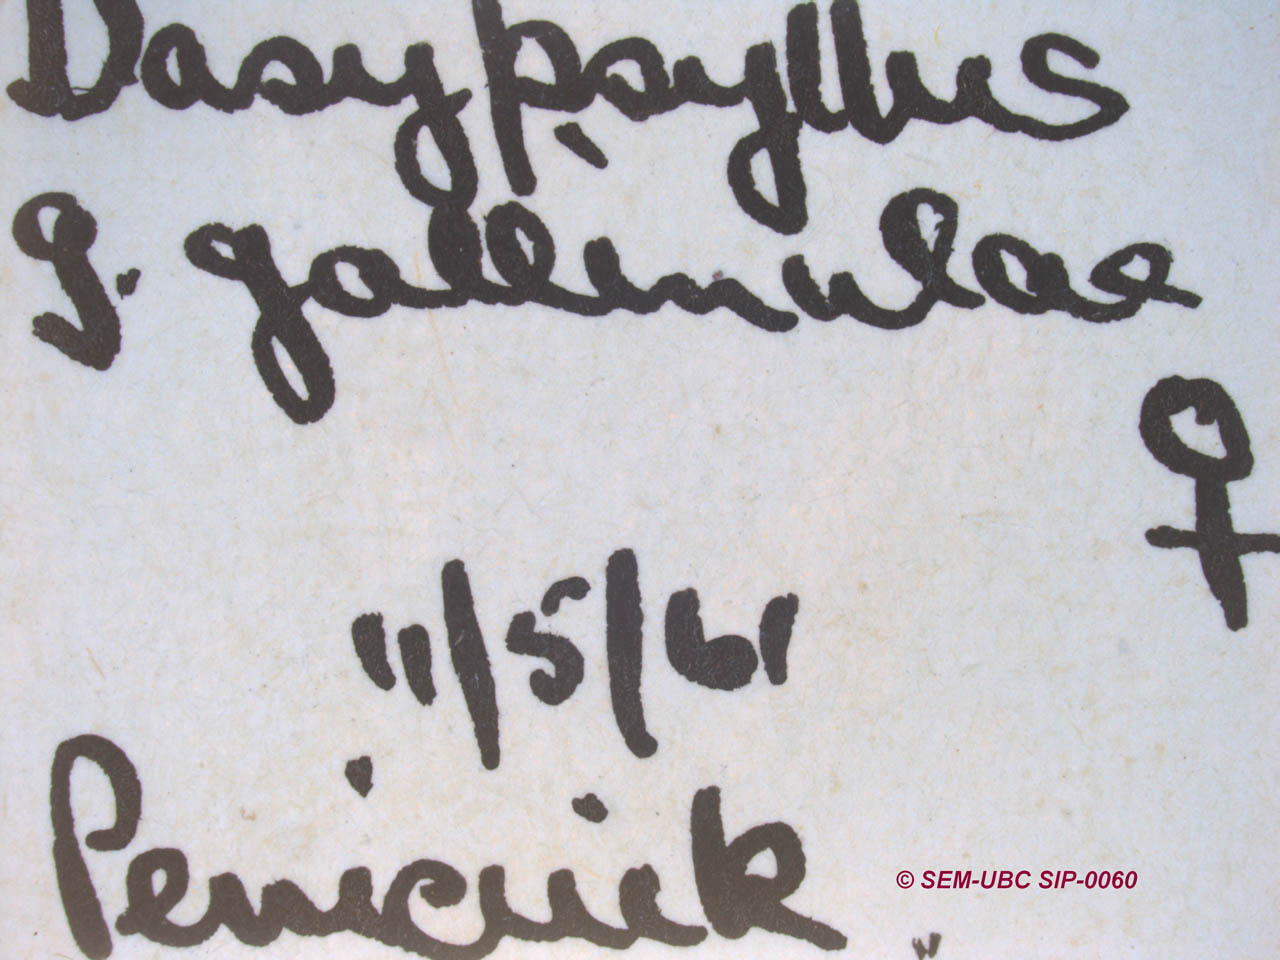 Dasypsyllus
g. gallinulae
♀
11/5/61
Penicuik
© SEM-UBC SIP-0060